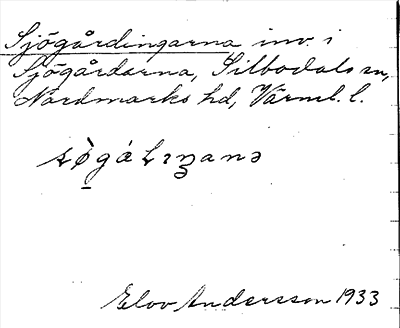 Sjögårdingarna inv. i
Sjögårdarna, Silbodals sn,
Nordmarks hd, Värml. l.
Elov Andersson 1933